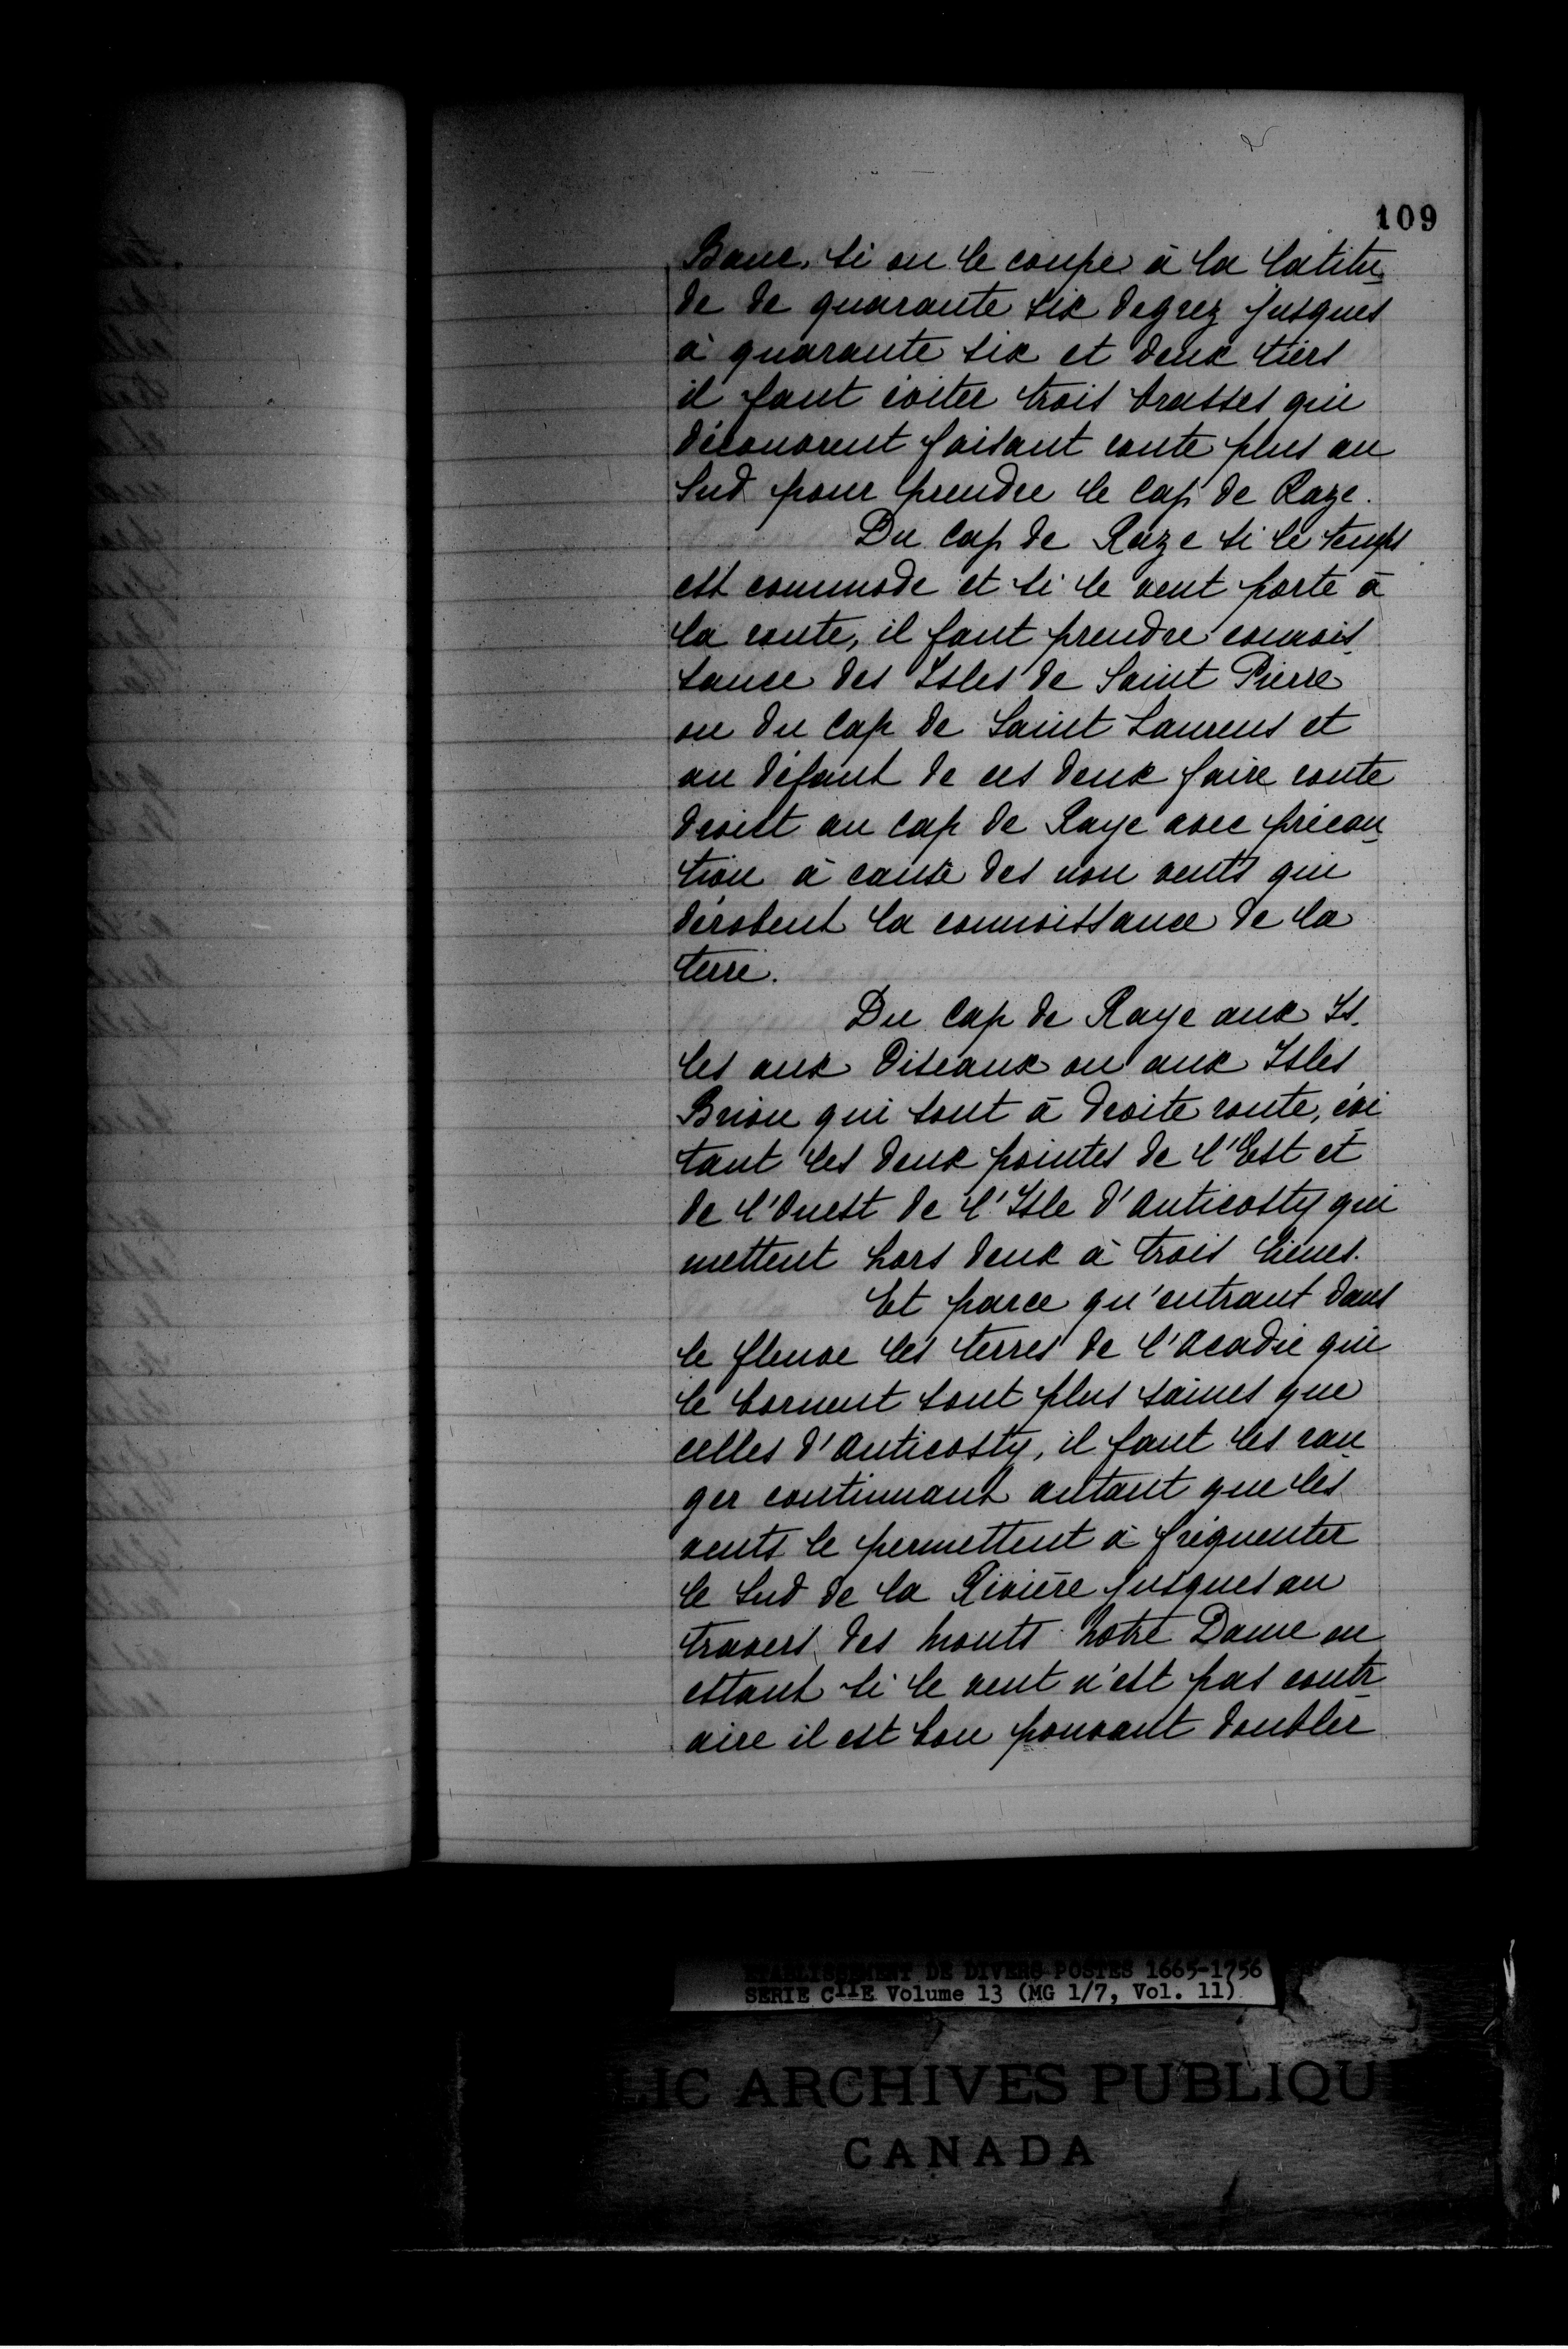 109
Banc, si on le coupe à la latitu-
de de quarante six degrez jusques
à quarante six et deux tiers
il faut éviter trois brasses qui
découvrent faisant route plus au
Sud pour prendre le Cap de Raze.
Du Cap de Raze si le temps
est commode et si le vent porte à
la route, il faut prendre connois-
sance des Isles de Saint Pierre
ou du Cap de Saint Laurens et
au défaut de ces deux faire route
droist au Cap de Raye avec précau-
tion à cause des non vents qui
dérobent la connoissance de la
terre.
Du Cap de Raye aux Is-
les aux Oiseaux ou aux Isles
Brion qui sont à droite route, évi-
tant les deux pointes de l'Est et
de l'Ouest de l'Isle d'Anticosty qui
mettent hors deux à trois lieues.
Et parce qu'entrant dans
le fleuve les terres de l'Acadie qui
le bornent sont plus saines que
celles d'Anticosty, il faut les ran-
ger continuant autant que les
vents le permettent à fréquenter
le Sud de la Rivière jusques au
travers des monts Notre Dame ou
estant si le vent n'est pas contr-
aire il est bon pouvant doubler
ETABLISSEMENT DE DIVERS POSTES 1665-1756
SERIE C11E Volume 13 (MG 1/7, Vol. 11)
LIC ARCHIVES PUBLIQU
CANADA